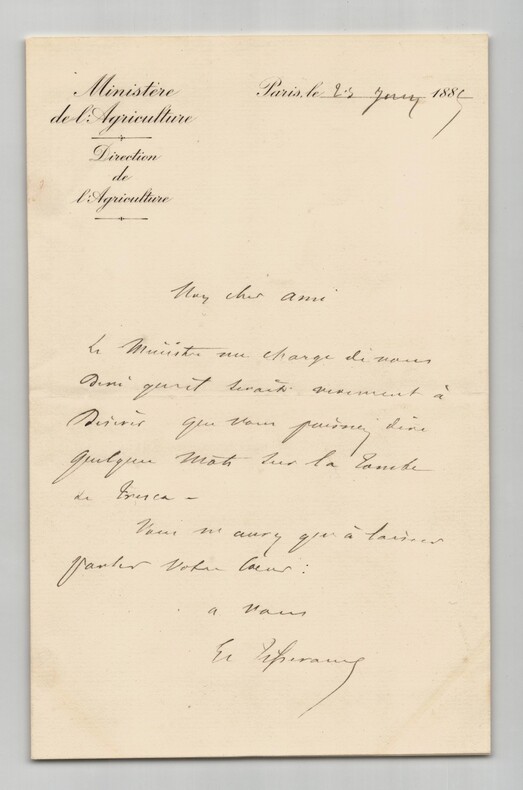 Ministère
de l'Agriculture
Direction
de
l'Agriculture
Paris, le 23 Juin 1885
Mon cher ami
Le Ministre me charge de vous
dire qu'il serait vivement à
désirer que vous puissiez dire
quelques mots sur la tombe
de Tresca –
Vous n'aurez qu'à laisser
parler votre cœur :
a vous
E. Tisserand